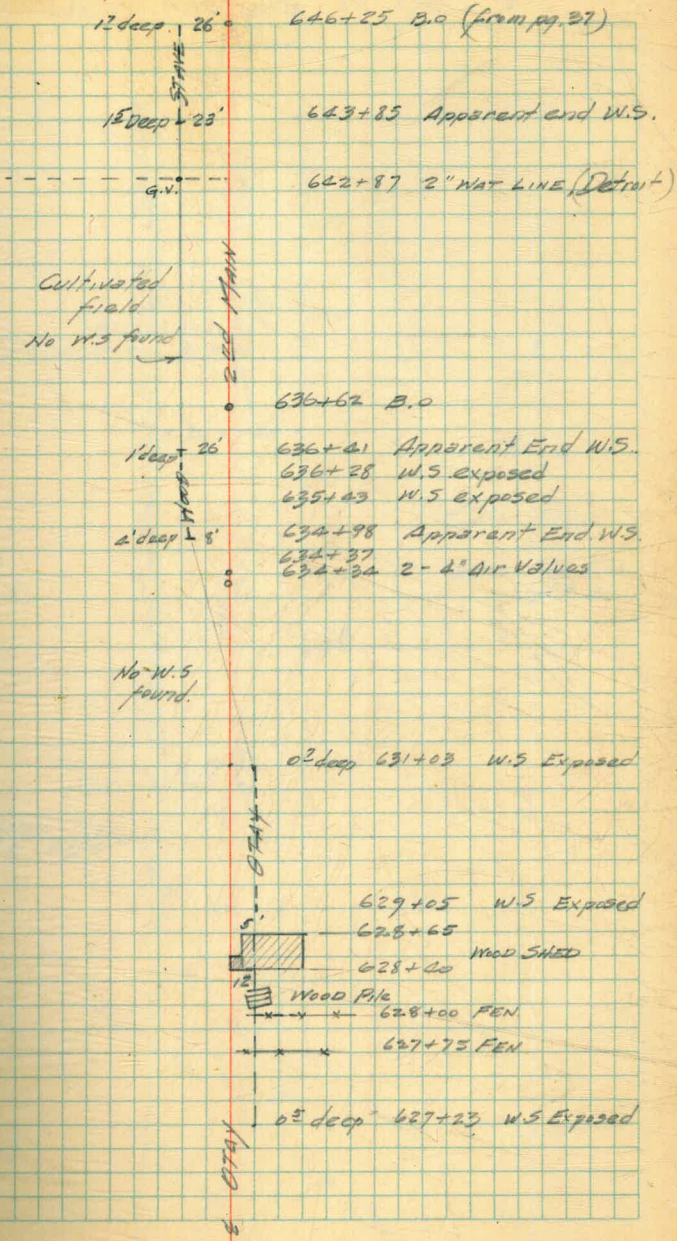 1² deep 26' 646+25 B.O (from pg. 37)
STAVE
1⁵ Deep 23' 643+85 Apparent end W.S.
G.V. 642+87 2" WAT LINE (Detroit)
2nd MAIN
Cultivated
field
No W.S found
636+62 B.O
1' deep 26' 636+41 Apparent End W.S.
636+28 W.S. exposed
635+43 W.S exposed
WOOD
8' 634+98 Apparent End W.S.
634+37
634+34 2-4" Air Valves
No W.S
found.
0² deep 631+03 W.S Exposed
OTAY
629+05 W.S Exposed
628+65
WOOD SHED
628+40
12
WOOD Pile
628+00 FEN
627+75 FEN
0⁵ deep 627+23 W.S Exposed
OTAY